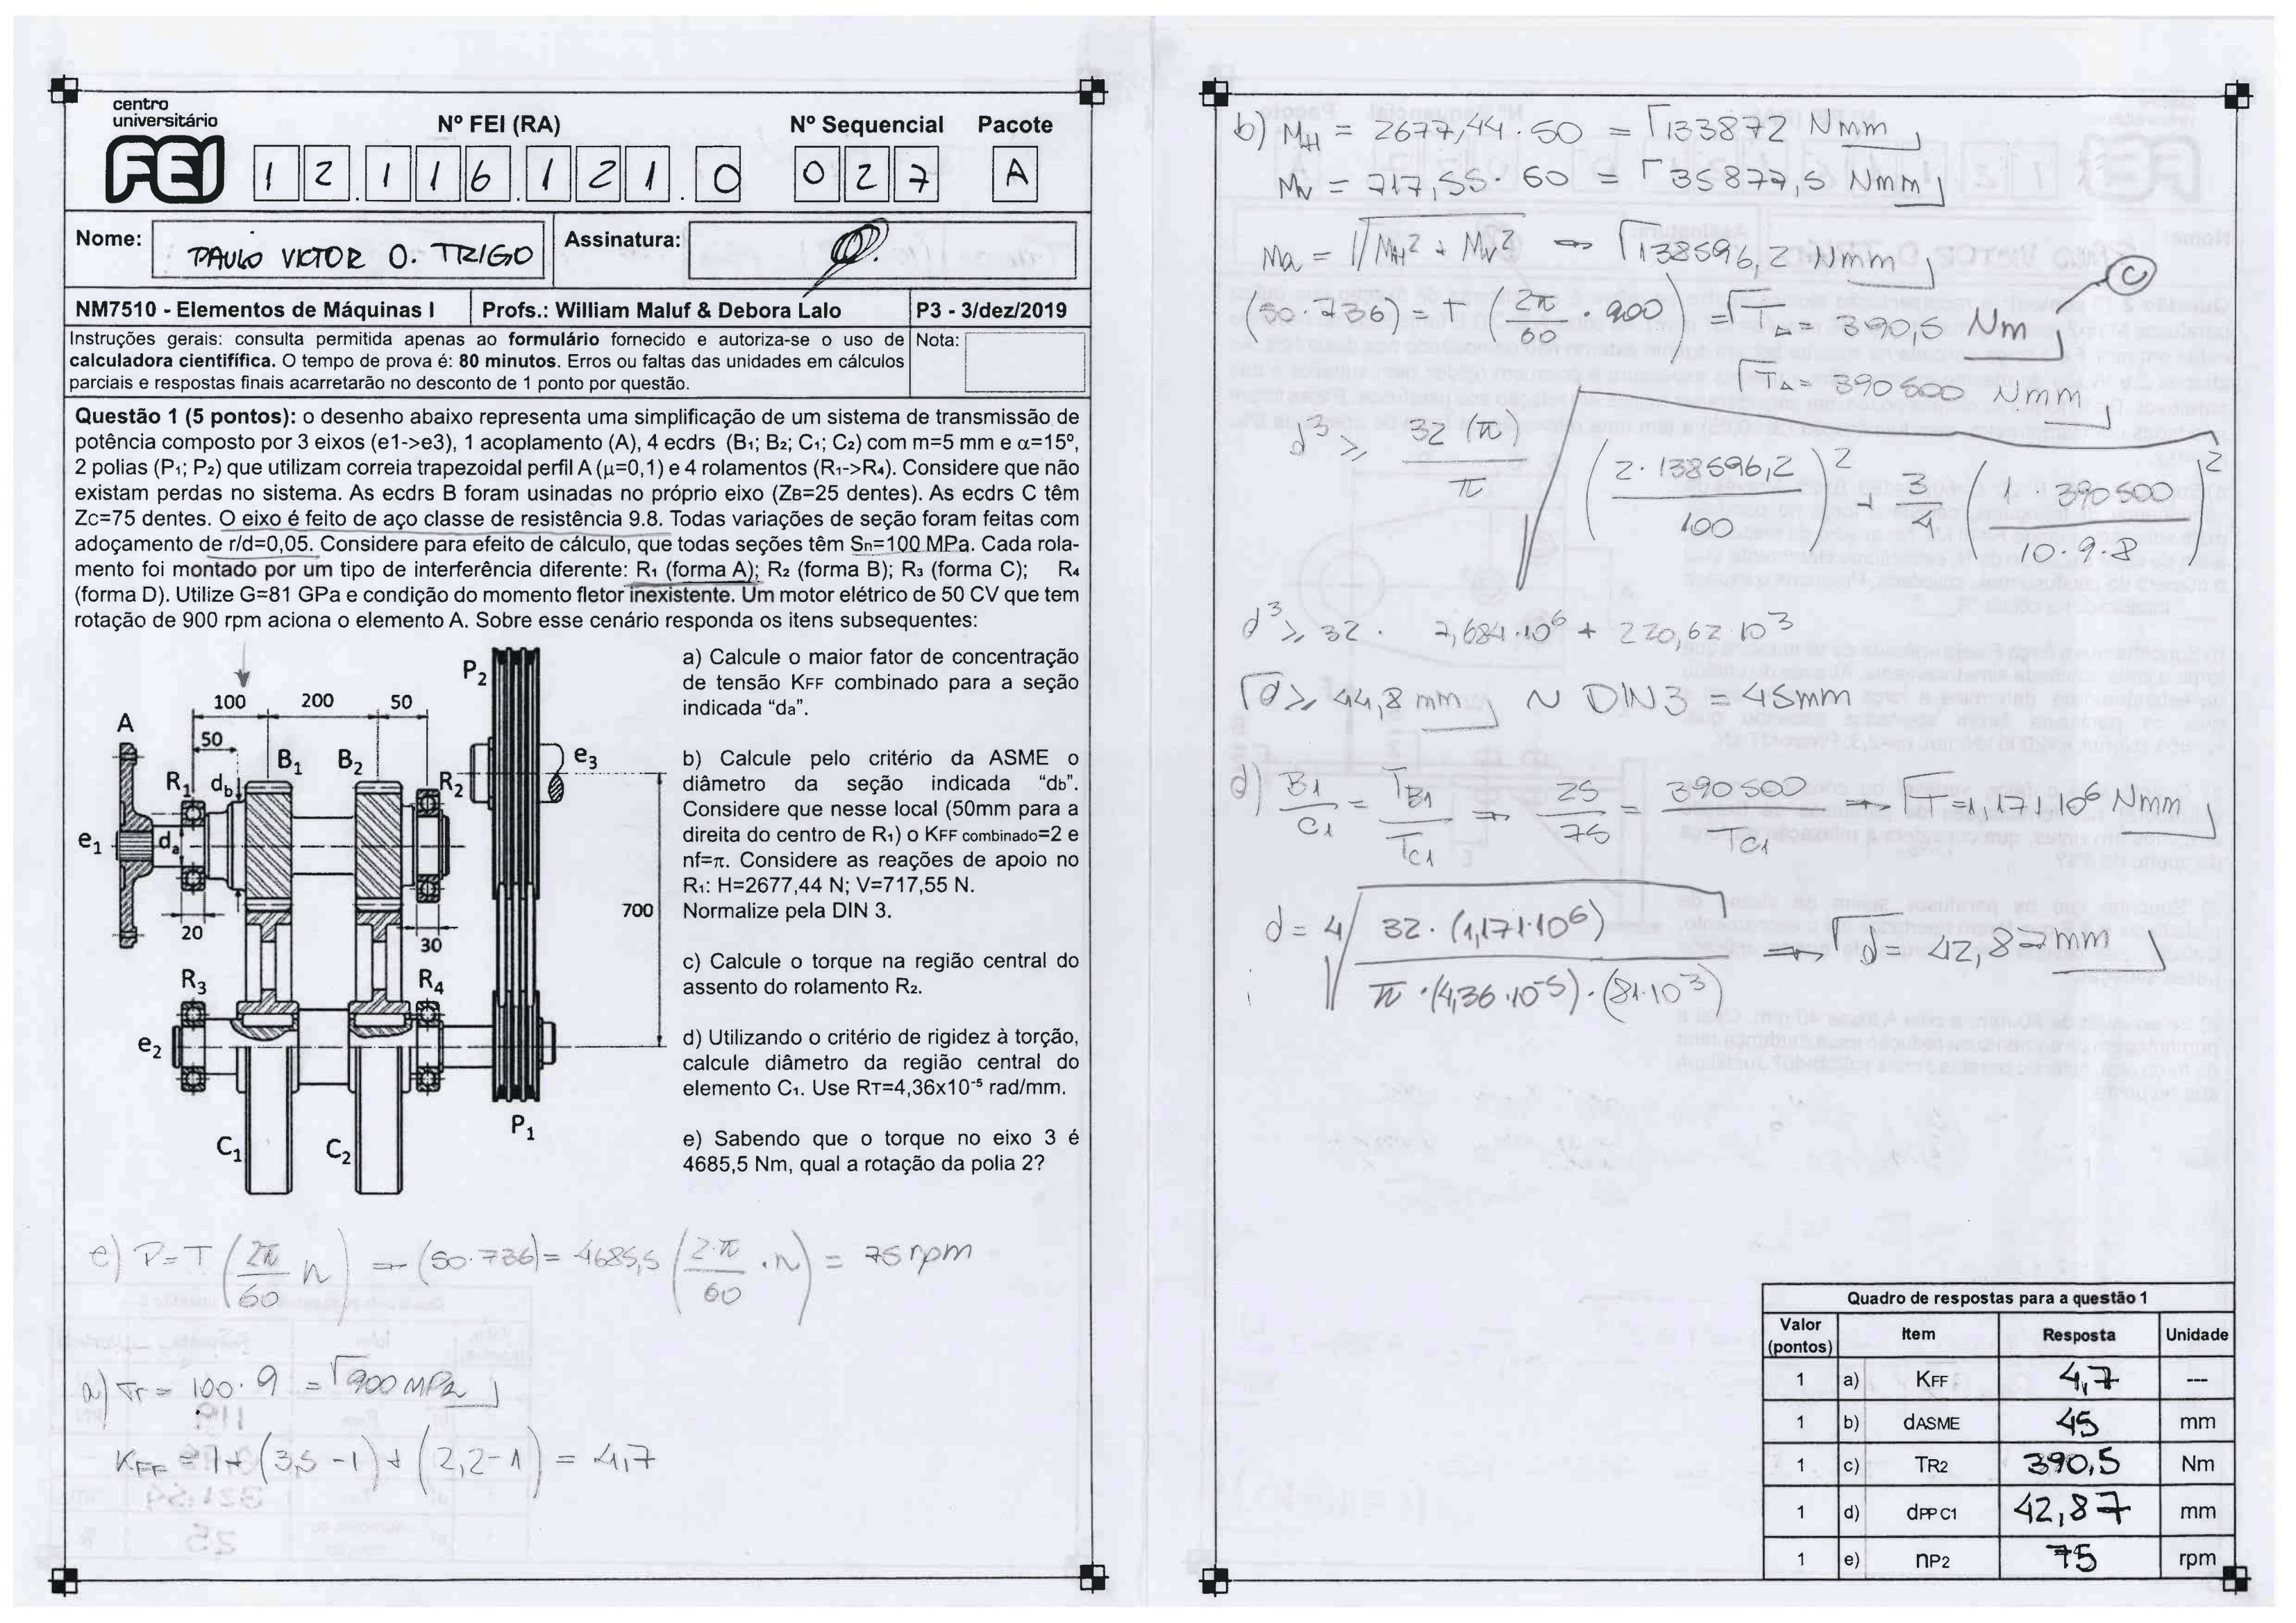 centro
universitário
FEI
Nº FEI (RA)
Nº Sequencial
Pacote
1 2 . 1 1 6 . 1 2 1 . 0
0 2 7
A
Nome:
PAULO VICTOR O. TRIGO
Assinatura:
NM7510 - Elementos de Máquinas I
Profs.: William Maluf & Debora Lalo
P3 - 3/dez/2019
Instruções gerais: consulta permitida apenas ao formulário fornecido e autoriza-se o uso de
calculadora cientifífica. O tempo de prova é: 80 minutos. Erros ou faltas das unidades em cálculos
parciais e respostas finais acarretarão no desconto de 1 ponto por questão.
Nota:
Questão 1 (5 pontos): o desenho abaixo representa uma simplificação de um sistema de transmissão de
potência composto por 3 eixos (e1->e3), 1 acoplamento (A), 4 ecdrs (B1; B2; C1; C2) com m=5 mm e α=15º,
2 polias (P1; P2) que utilizam correia trapezoidal perfil A (μ=0,1) e 4 rolamentos (R1->R4). Considere que não
existam perdas no sistema. As ecdrs B foram usinadas no próprio eixo (ZB=25 dentes). As ecdrs C têm
Zc=75 dentes. O eixo é feito de aço classe de resistência 9.8. Todas variações de seção foram feitas com
adoçamento de r/d=0,05. Considere para efeito de cálculo, que todas seções têm Sn=100 MPa. Cada rola-
mento foi montado por um tipo de interferência diferente: R1 (forma A); R2 (forma B); R3 (forma C); R4
(forma D). Utilize G=81 GPa e condição do momento fletor inexistente. Um motor elétrico de 50 CV que tem
rotação de 900 rpm aciona o elemento A. Sobre esse cenário responda os itens subsequentes:
100 200 50
50
A
B1
B2
R1
db
R2
e1
da
P2
e3
20
30
700
R3
R4
e2
C1
C2
P1
a) Calcule o maior fator de concentração
de tensão KFF combinado para a seção
indicada “da”.
b) Calcule pelo critério da ASME o
diâmetro da seção indicada “db”.
Considere que nesse local (50mm para a
direita do centro de R1) o KFF combinado=2 e
nf=π. Considere as reações de apoio no
R1: H=2677,44 N; V=717,55 N.
Normalize pela DIN 3.
c) Calcule o torque na região central do
assento do rolamento R2.
d) Utilizando o critério de rigidez à torção,
calcule diâmetro da região central do
elemento C1. Use RT=4,36x10⁻⁵ rad/mm.
e) Sabendo que o torque no eixo 3 é
4685,5 Nm, qual a rotação da polia 2?
e) P=T (2π/60 n) → (50.736)= 4685,5 (2.π/60 .n) = 75 rpm
a) σr = 100. 9 = 900 MPa
KFF = 1+ (3,5 -1) + (2,2-1) = 4,7
b) MH = 2677,44 . 50 = 133872 Nmm
Mv = 717,55. 60 = 35877,5 Nmm
Ma = √(MH² + Mv²) → 138596,2 Nmm
C
(50.736) = T (2π/60 . 900) = TA = 390,5 Nm
TA = 390500 Nmm
d³ ≥ 32 (π)/π √((2. 138596,2/100)² + 3/4 (1. 390500/10.9.8)²)
d³ ≥ 32 . 7,684.10⁶ + 220,62 10³
d ≥ 44,8 mm ~ DIN3 = 45mm
d) B1/C1 = TB1/TC1 → 25/75 = 390500/TC1 → T=1,171.10⁶ Nmm
d = ⁴√(32. (1,171.10⁶)/π .(4,36.10⁻⁵) . (81.10³)) → d= 42,87mm
Quadro de respostas para a questão 1
Valor (pontos) Item Resposta Unidade
1 a) KFF 4,7 ---
1 b) dASME 45 mm
1 c) TR2 390,5 Nm
1 d) dPP C1 42,87 mm
1 e) nP2 75 rpm